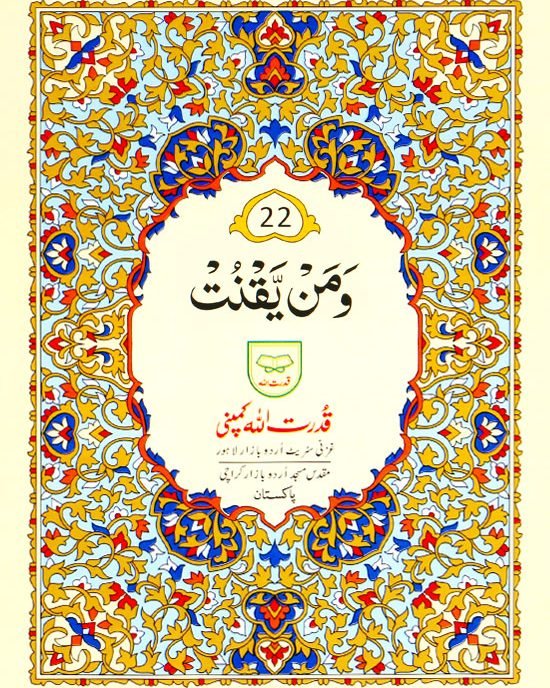 22
وَمَنۡ يَّقۡنُتۡ
قدرت اللہ
قُدرت اللہ کمپنی
غزنی سٹریٹ اُردو بازار لاہور
مقدس مسجد اُردو بازار کراچی
پاکستان